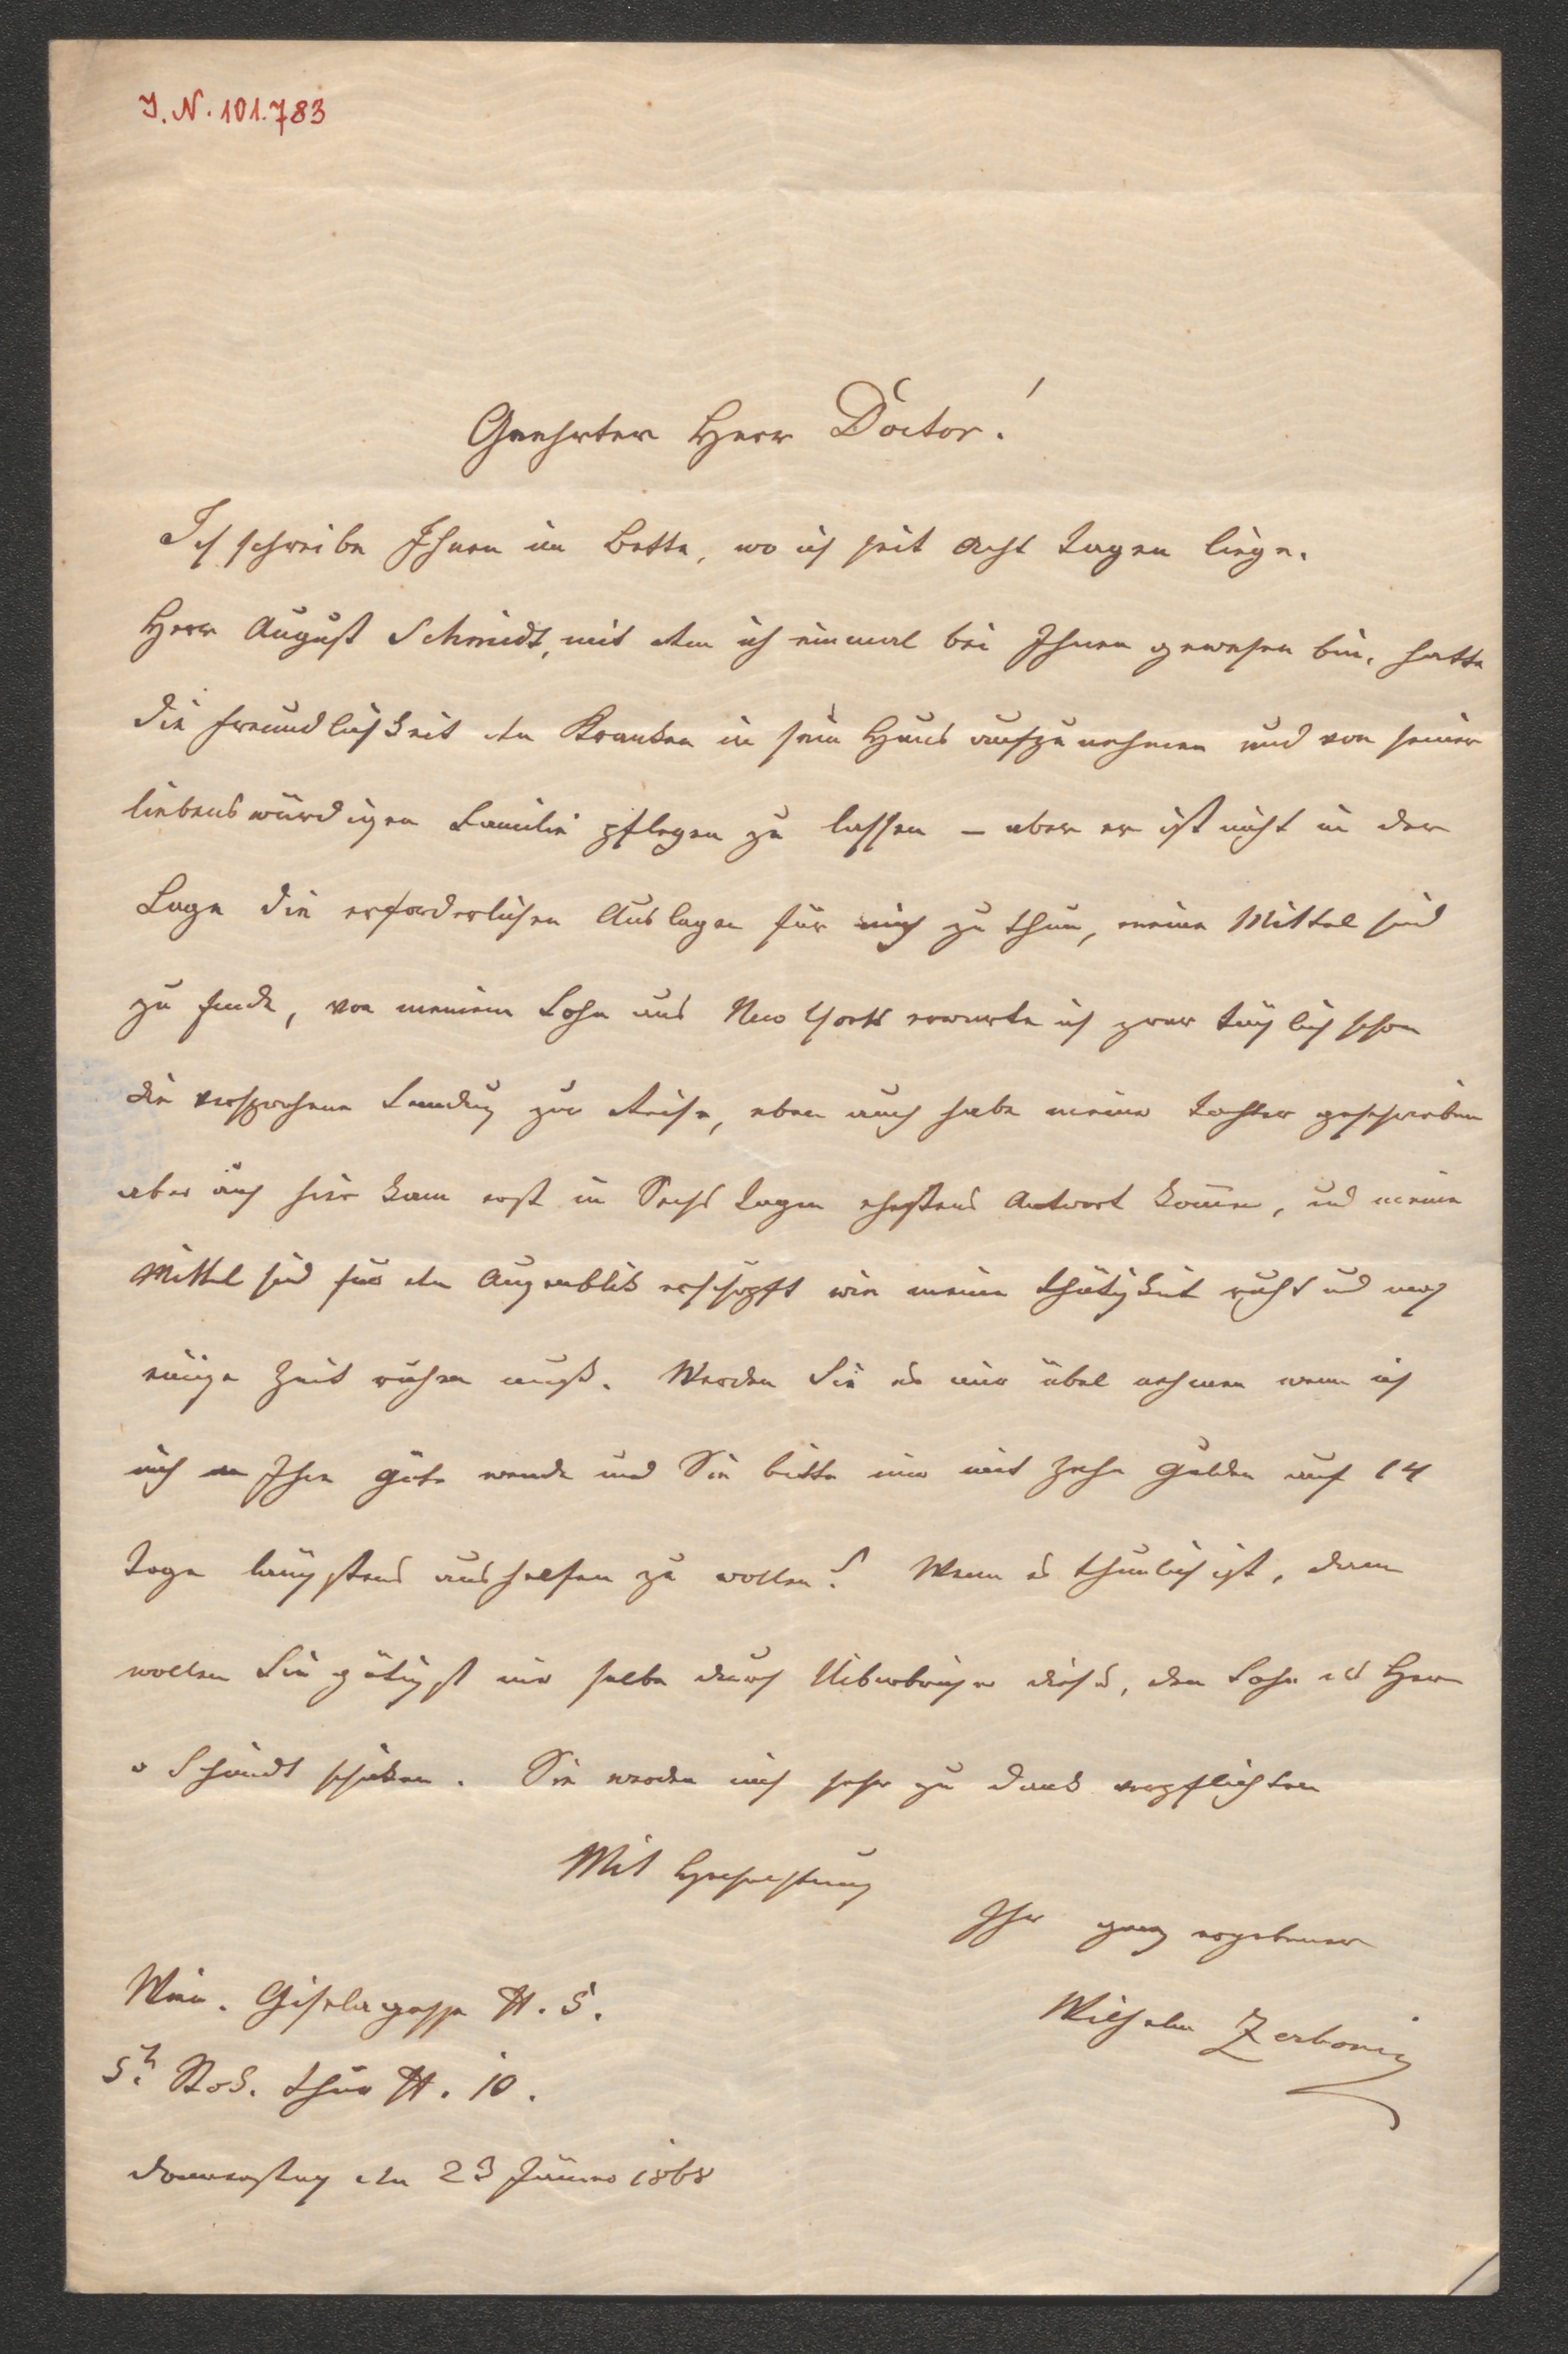 I. N. 101.783
Geehrter Herr Doctor!
Ich schreibe Ihnen im Bette, wo ich seit acht Tagen liege.
Herr August Schmidt, mit dem ich einmal bei Ihnen gewesen bin, hatte
die Freundlichkeit den Kranken in sein Haus aufzunehmen und von seiner
liebenswürdigen Familie pflegen zu lassen – aber er ist nicht in der
Lage die erforderlichen Auslagen für mich zu thun, meine Mittel sind
zu Ende, von meinem Sohn aus New York erwarte ich zwar täglich schon
die versprochene Sendung zur Reise, eben auch habe meiner Tochter geschrieben
aber auch hier kann erst in Sechs Tagen ehestens Antwort kommen, und meine
Mittel sind für den Augenblik erschöpft wie meine Thätigkeit ruht und noch
einige Zeit ruhen muß. Werden Sie es mir übel nehmen wenn ich
mich an Ihre Güte wende und Sie bitte mir mit Zehn Gulden auf 14
Tage längstens aushelfen zu wollen? Wenn es thunlich ist, dann
wollen Sie gütigst mir selbe durch Uiberbringer dieses, den Sohn des Herrn
v Schmidt schiken. Sie werden mich sehr zu Dank verpflichten
Mit Hochachtung
Ihr ganz ergebener
Wilhelm Zerboni
Wien. Giselagasse N. 5.
5t. Stok. Thür N. 10.
Donnerstag den 23 Jänner 1868